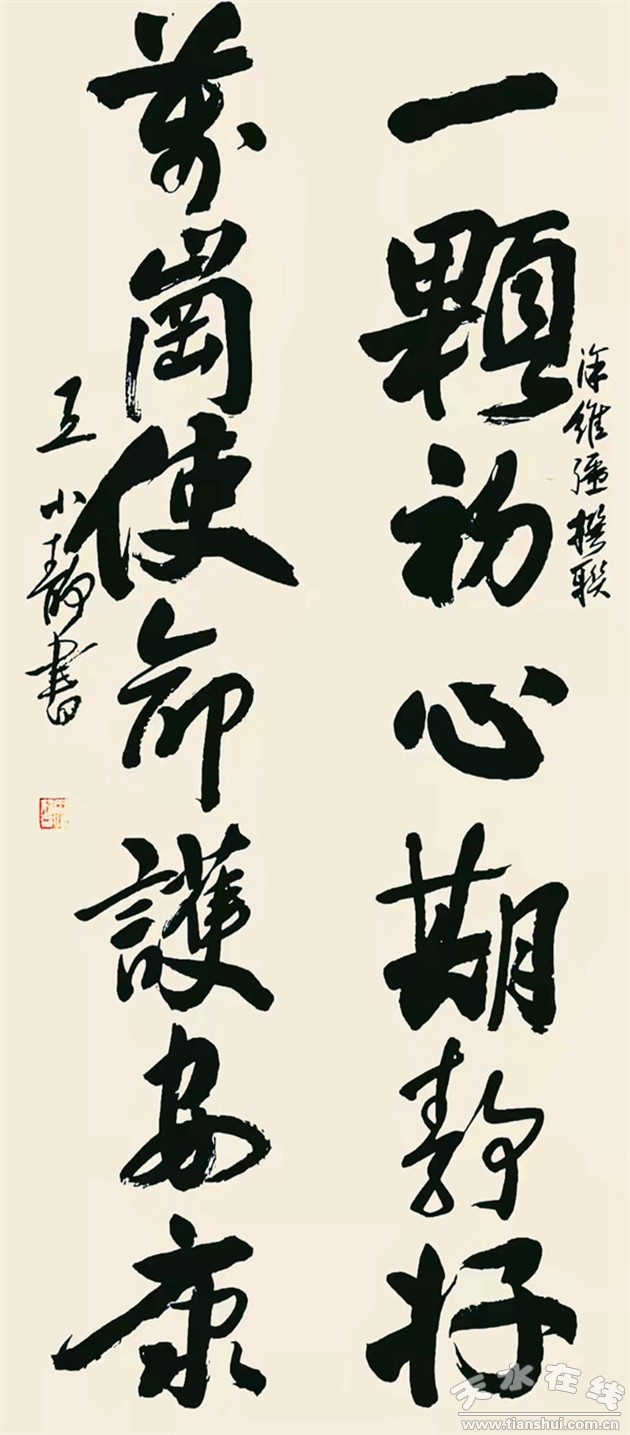 一顆初心期静好
涂維彊撰聯
萬崗使命護安康
王小静書
天水在线
www.tianshui.com.cn